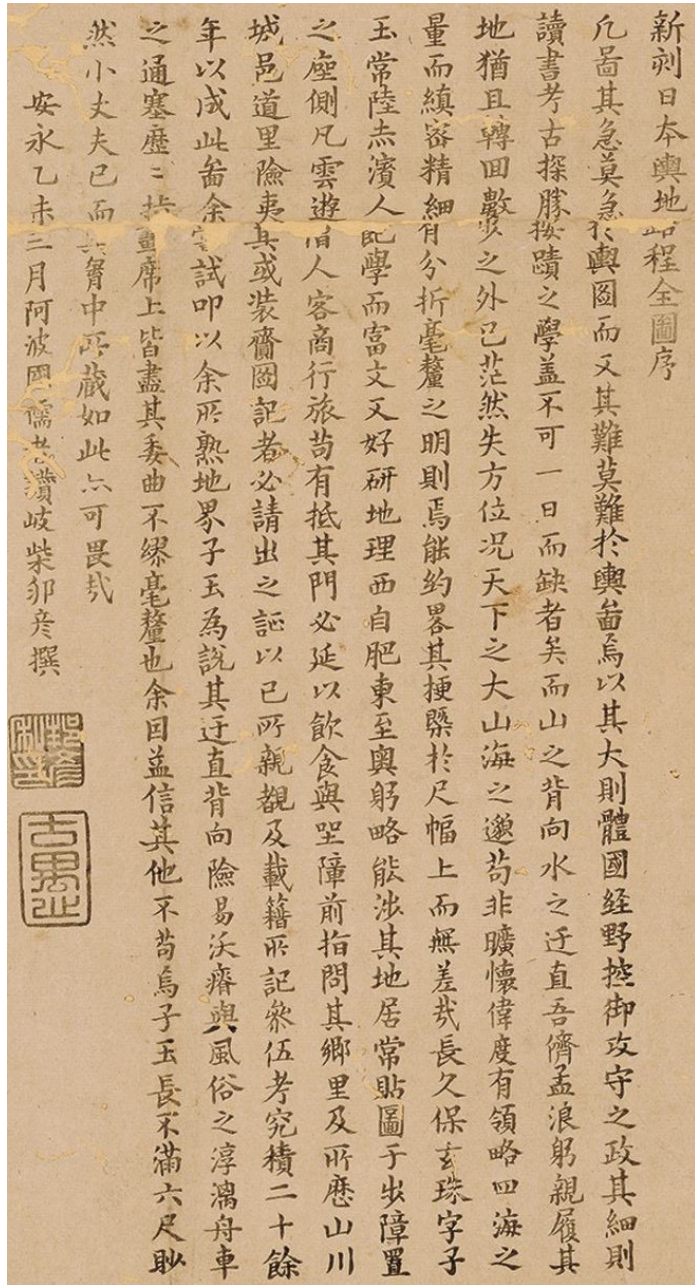 新刻日本輿地路程全圖序
凡啚其急莫急於輿圖而又其難莫難於輿啚焉以其大則體國経野控御攻守之政其細則
讀書考古探勝按蹟之學盖不可一日而缺者矣而山之背向水之迂直吾儕孟浪躬親履其
地猶且轉回數步之外已茫然失方位况天下之大山海之邈苟非曠懷偉度有領略四海之
量而縝密精細有分折毫釐之明則焉能約畧其梗槩於尺幅上而無差㢤長久保玄珠字子
玉常陸赤濱人肥學而富文又好研地理西自肥東至奥躬略能涉其地居常貼圖于出障置
之座側凡雲遊僧人客商行旅苟有抵其門必延以飲食與坐障前指問其鄉里及所歷山川
城邑道里險夷其或裝齎圖記者必請出之証以已所親覩及載籍所記參伍考究積二十餘
年以成此啚余嘗試叩以余所熟地界子玉為說其迂直背向險易沃瘠與風俗之淳漓舟車
之通塞歷〻指畫席上皆盡其委曲不繆毫釐也余因益信其他不苟焉子玉長不滿六尺眇
然小丈夫已而其胷中所藏如此亦可畏㢤
安永乙未三月阿波國儒者讚岐柴邦彦撰
邦彦